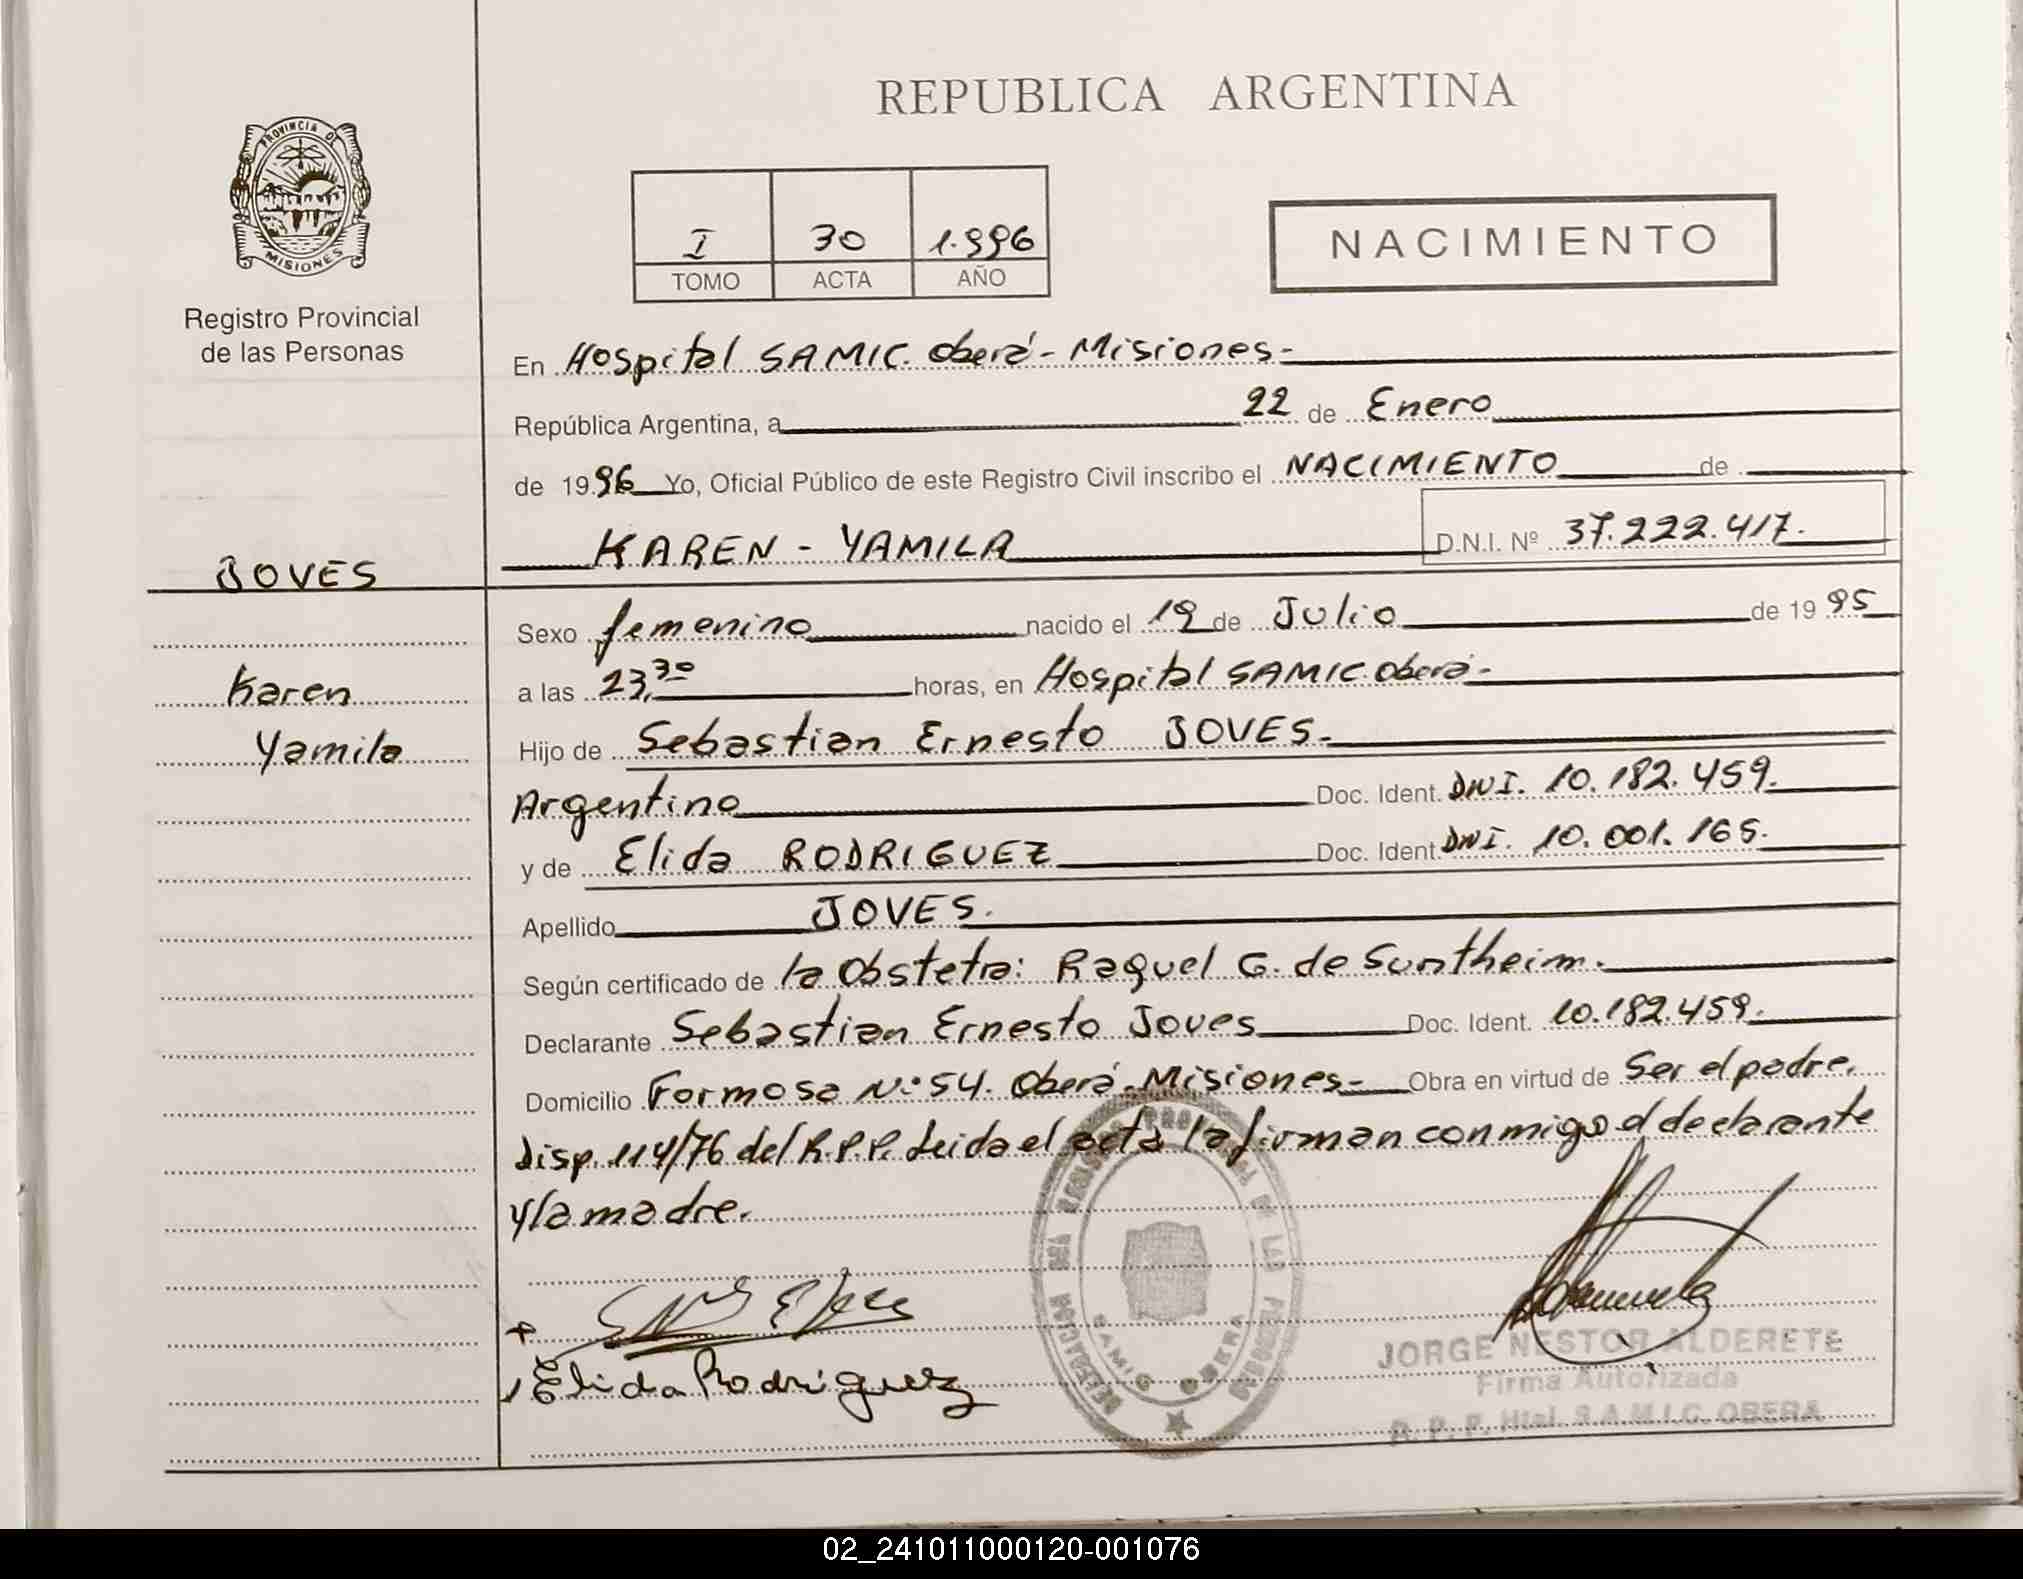 REPUBLICA ARGENTINA
PROVINCIA DE
MISIONES
Registro Provincial
de las Personas
I 30 1.996
TOMO ACTA AÑO
NACIMIENTO
En Hospital SAMIC. Oberá - Misiones -
República Argentina, a 22 de Enero
de 1996 Yo, Oficial Público de este Registro Civil inscribo el NACIMIENTO de
KAREN - YAMILA D.N.I. Nº 37.222.417.
JOVES
Karen
Yamila
Sexo femenino nacido el 19 de Julio de 1995
a las 23,30 horas, en Hospital SAMIC. Oberá -
Hijo de Sebastian Ernesto JOVES -
Argentino Doc. Ident. DNI. 10.182.459.
y de Elida RODRIGUEZ Doc. Ident. DNI. 10.001.165.
Apellido JOVES.
Según certificado de la Obstetra: Raquel G. de Suntheim.
Declarante Sebastian Ernesto Joves Doc. Ident. 10.182.459.
Domicilio Formosa Nº 54. Oberá - Misiones - Obra en virtud de Ser el padre.
Disp. 114/76 del R.P.P. Leida el acta la firman conmigo el declarante
y la madre.
Elida Rodriguez
DELEGACION DEL REGISTRO PROVINCIAL DE LAS PERSONAS
SAMIC OBERA
JORGE NESTOR ALDERETE
Firma Autorizada
R. P. P. Htal. S.A.M.I.C. OBERA
02_241011000120-001076